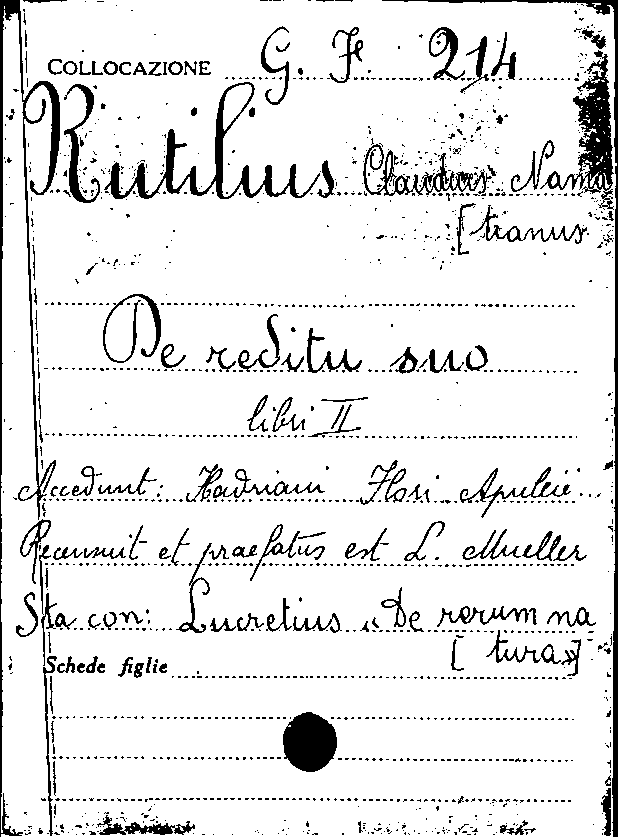 COLLOCAZIONE G. F. 214
Rutilius Claudius Nama
[tianus
De reditu suo
libri II
Accedunt: Hadriani Flori Apuleii...
Recensuit et praefatus est L. Mueller
Sta con: Lucretius « De rerum na
[tura»]
Schede figlie